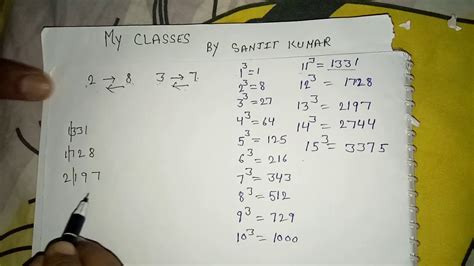 MY CLASSES BY SANJIT KUMAR
2 → 8 3 → 7
←  ←
1|331
1|728
2|197
1³=1
2³=8
3³=27
4³=64
5³=125
6³=216
7³=343
8³=512
9³=729
10³=1000
11³=1331
12³=1728
13³=2197
14³=2744
15³=3375